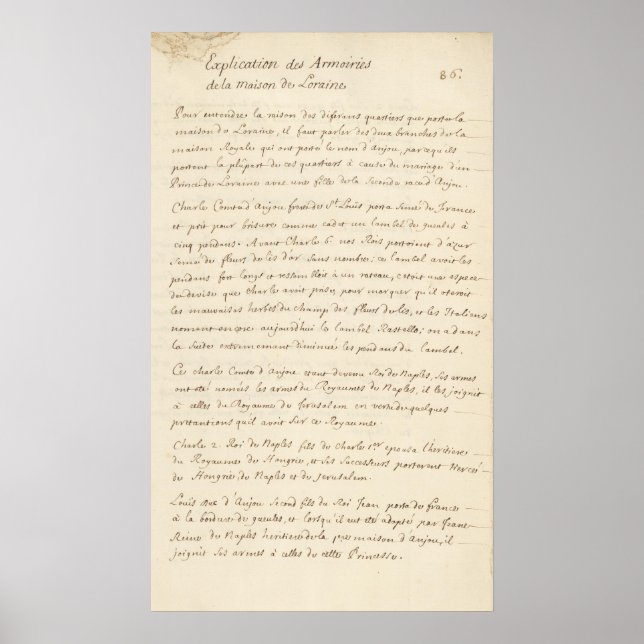 Explication des Armoiries
de la Maison de Loraine
86.
Pour entendre la raison des diferans quartiers que porte la
maison de Loraine, il faut parler des deux branches de la
maison Royale qui ont porté le nom d'Anjou, parcequ'ils
portent la plûpart de ces quartiers à cause du mariage d'un
Prince de Loraine avec une fille de la Seconde race d'Anjou.
Charle Comte d'Anjou frere de St. Louis porta Semé de France
et prit pour brisure comme cadet un lambel de gueules à
cinq pendans. Avant Charle 6. nos Rois portoient d'azur
Semé de fleurs de lis d'or Sans nombre; ce lambel avoit les
pendans fort longs et ressembloit à un rateau, c'etoit une espece
de devise que Charle avoit prise, pour marquer qu'il oteroit
les mauvaises herbes du champ des fleurs de lis, et les Italiens
noment encore aujourd'hui le lambel Rastello; on a dans
la Suite extremement diminué les pendans du lambel.
Ce Charle Comte d'Anjou etant devenu Roi de Naples, Ses armes
ont eté nomées les armes du Royaume de Naples, il les joignit
à celles du Royaume de Jerusalem en vertu de quelques
pretantions qu'il avoit Sur ce Royaume.
Charle 2. Roi de Naples fils de Charle 1.er epousa l'heritiere
du Royaume de Hongrie, et Ses Successeurs porterent
de Hongrie, de Naples et de Jerusalem.
Louis Duc d'Anjou Second fils du Roi Jean porta de france
à la bordure de gueules, et lorsqu'il eut eté adopté par Jeane
Reine de Naples heritiere de la maison d'Anjou, il
joignit Ses armes à celles de cette Princesse.